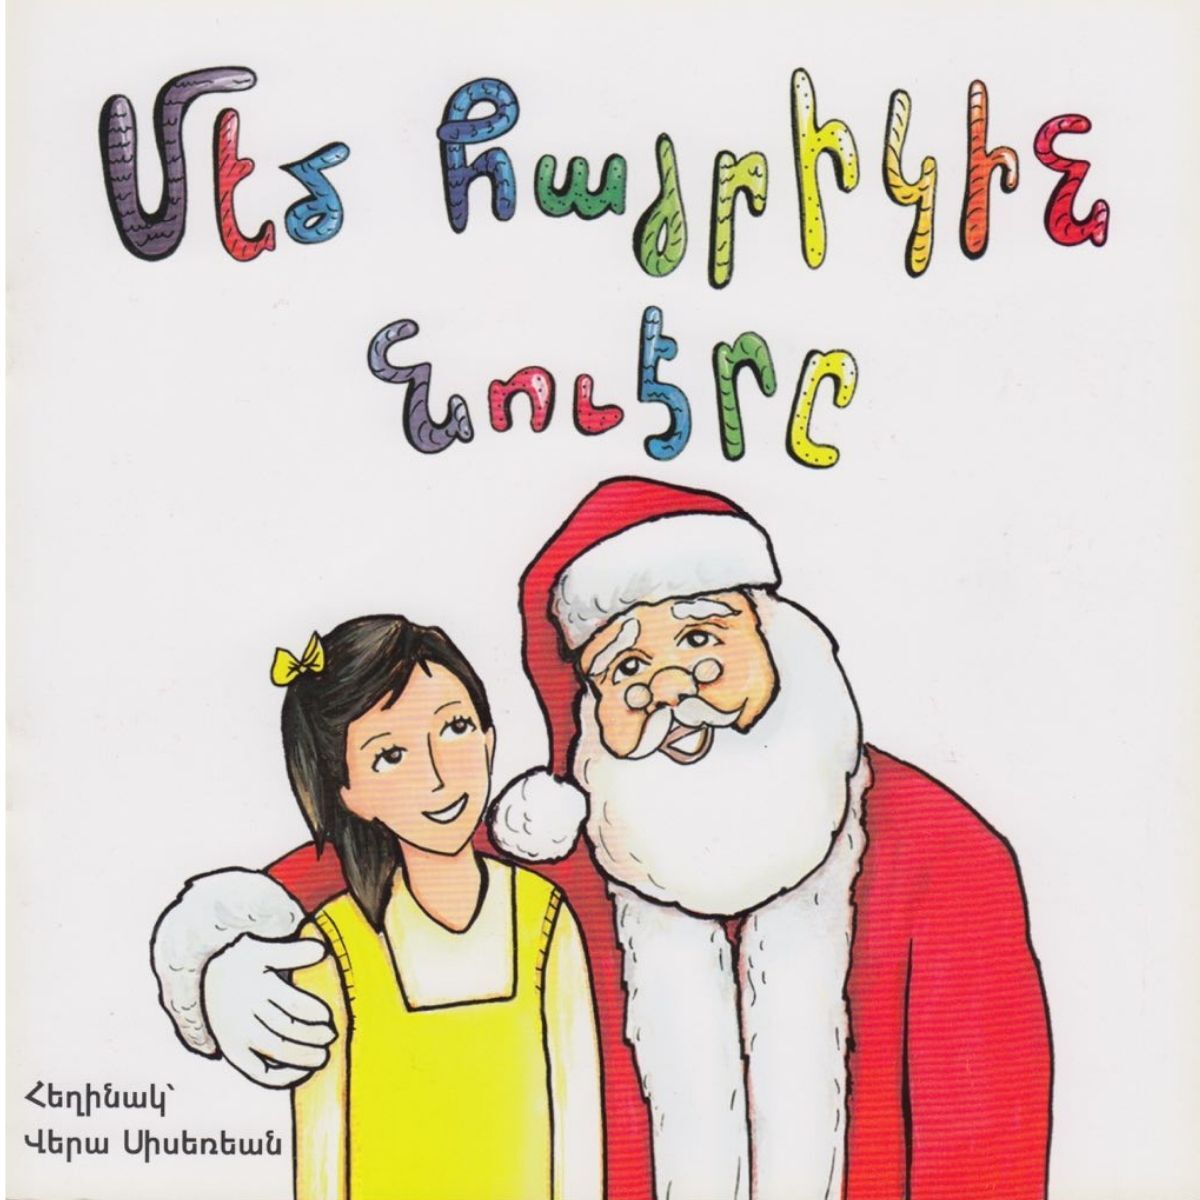 Մեծ Հայրիկին
Նուէրը
Հեղինակ՝
Վերա Սիսեռեան